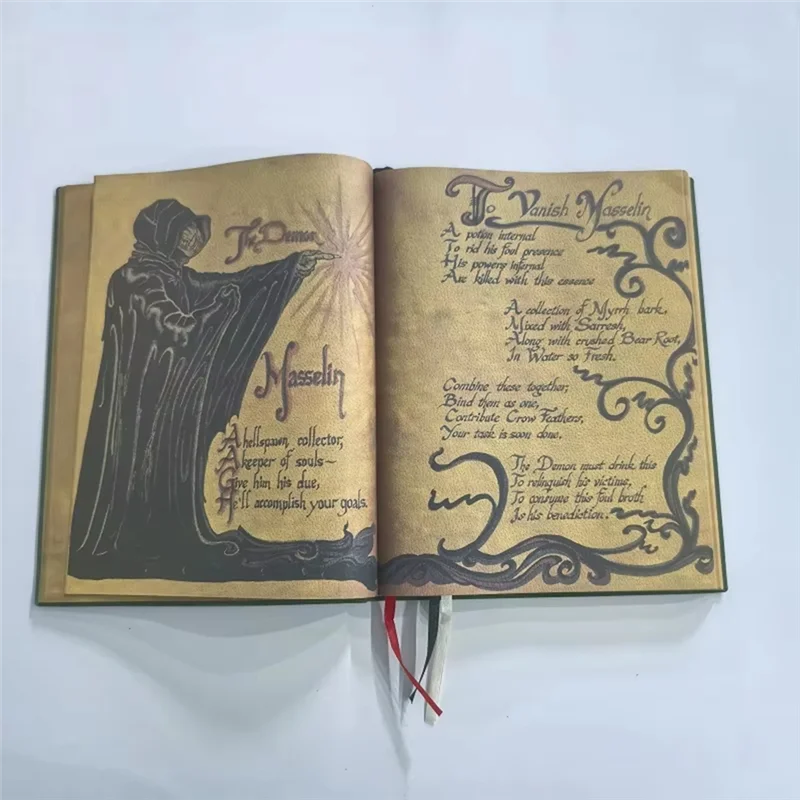 The Demon
Masselin
A hellspawn collector,
A keeper of souls~
Give him his due,
He'll accomplish your goals.
To Vanish Masselin
A potion internal
To rid his foul presence
His powers infernal
Are killed with this essence
A collection of Myrrh bark,
Mixed with Sarresh,
Along with crushed Bear Root,
In Water so Fresh.
Combine these together,
Bind them as one,
Contribute Crow Feathers,
Your task is soon done.
The Demon must drink this
To relinquish his victims,
To consume this foul broth
Is his benediction.